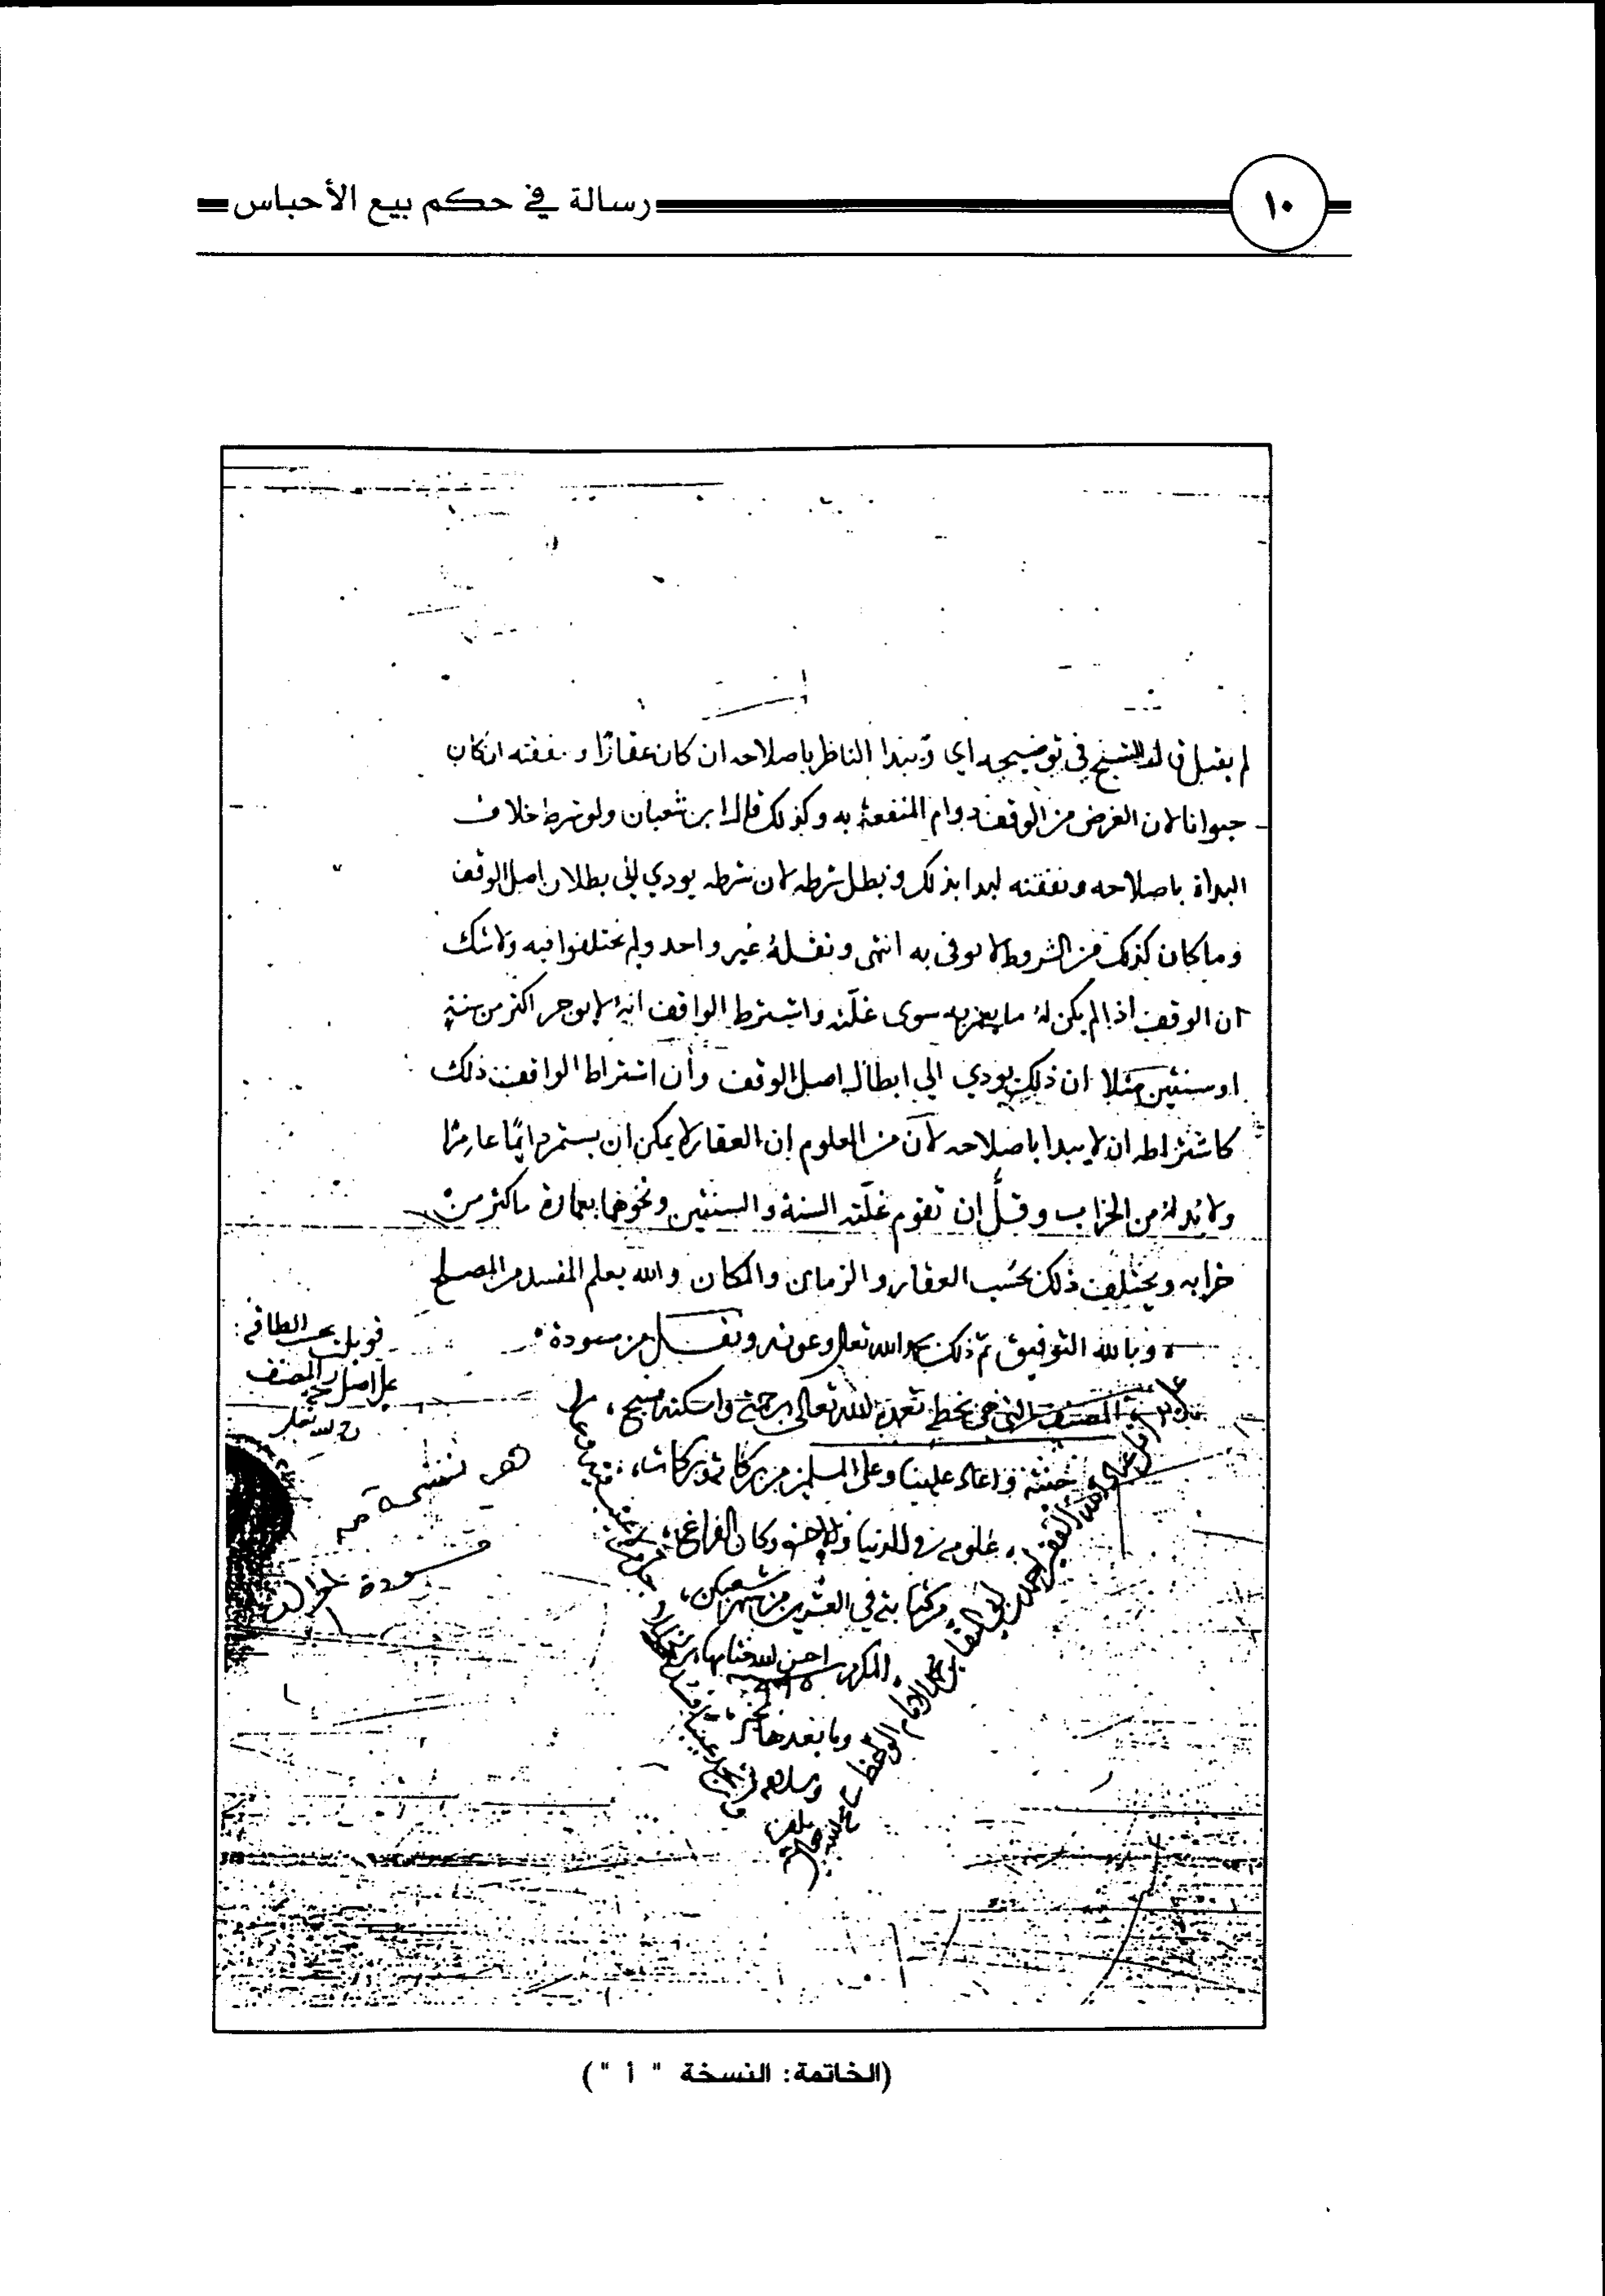 ١٠
رسالة في حكم بيع الأحباس
لم يقبل قال الشيخ في توضيحه اي ويبدا الناظر باصلاحه ان كان عقارًا ونفقته ان كان
حيوانا لان الغرض من الوقف دوام المنفعة به وكذلك قال ابن شعبان ولو شرط خلاف
البداة باصلاحه ونفقته لبدا بذلك وبطل شرطه لان شرطه يودي الى بطلان اصل الوقف
وما كان كذلك من الشروط لا يوفى به انتهى ونقله غير واحد ولم يختلفوا فيه ولا شك
ان الوقف اذا لم يكن له ما يعمر به سوى غلته واشترط الواقف انه لا يوجر اكثر من سنة
او سنتين مثلا ان ذلك يودي الي ابطال اصل الوقف وأن اشتراط الواقف ذلك
كاشتراطه ان لا يبدا باصلاحه لان من المعلوم ان العقار لا يمكن ان يستمر دايمًا عامرًا
ولا بد له من الخراب وقلَّ ان تقوم غلته السنة والسنتين ونحوهما بعمارة ما كثر من
خرابه ويختلف ذلك بحسب العقار والزمان والمكان والله يعلم المفسد من المصلح
وبالله التوفيق تم ذلك بحمد الله تعالى وعونه ونقل من مسودة
المصنف التي هي بخطه تغمده الله تعالى برحمته واسكنه فسيح
جنته واعاد علينا وعلى المسلمين من بركاته وبركات
علومه في الدنيا والاخرة وكان الفراغ
من كتابته في العشرين من شهر شعبان
المكرم احسن الله ختامها
وما بعدها بخير
قوبلت بحسب الطاقة
على اصل المصنف
هي نسخة من
مسودة
(الخاتمة: النسخة " أ ")